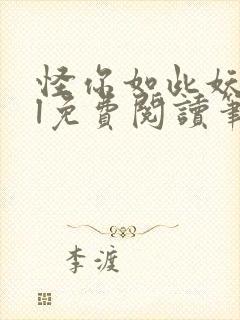 怪你如此妖
l免費閱讀筆
李渡